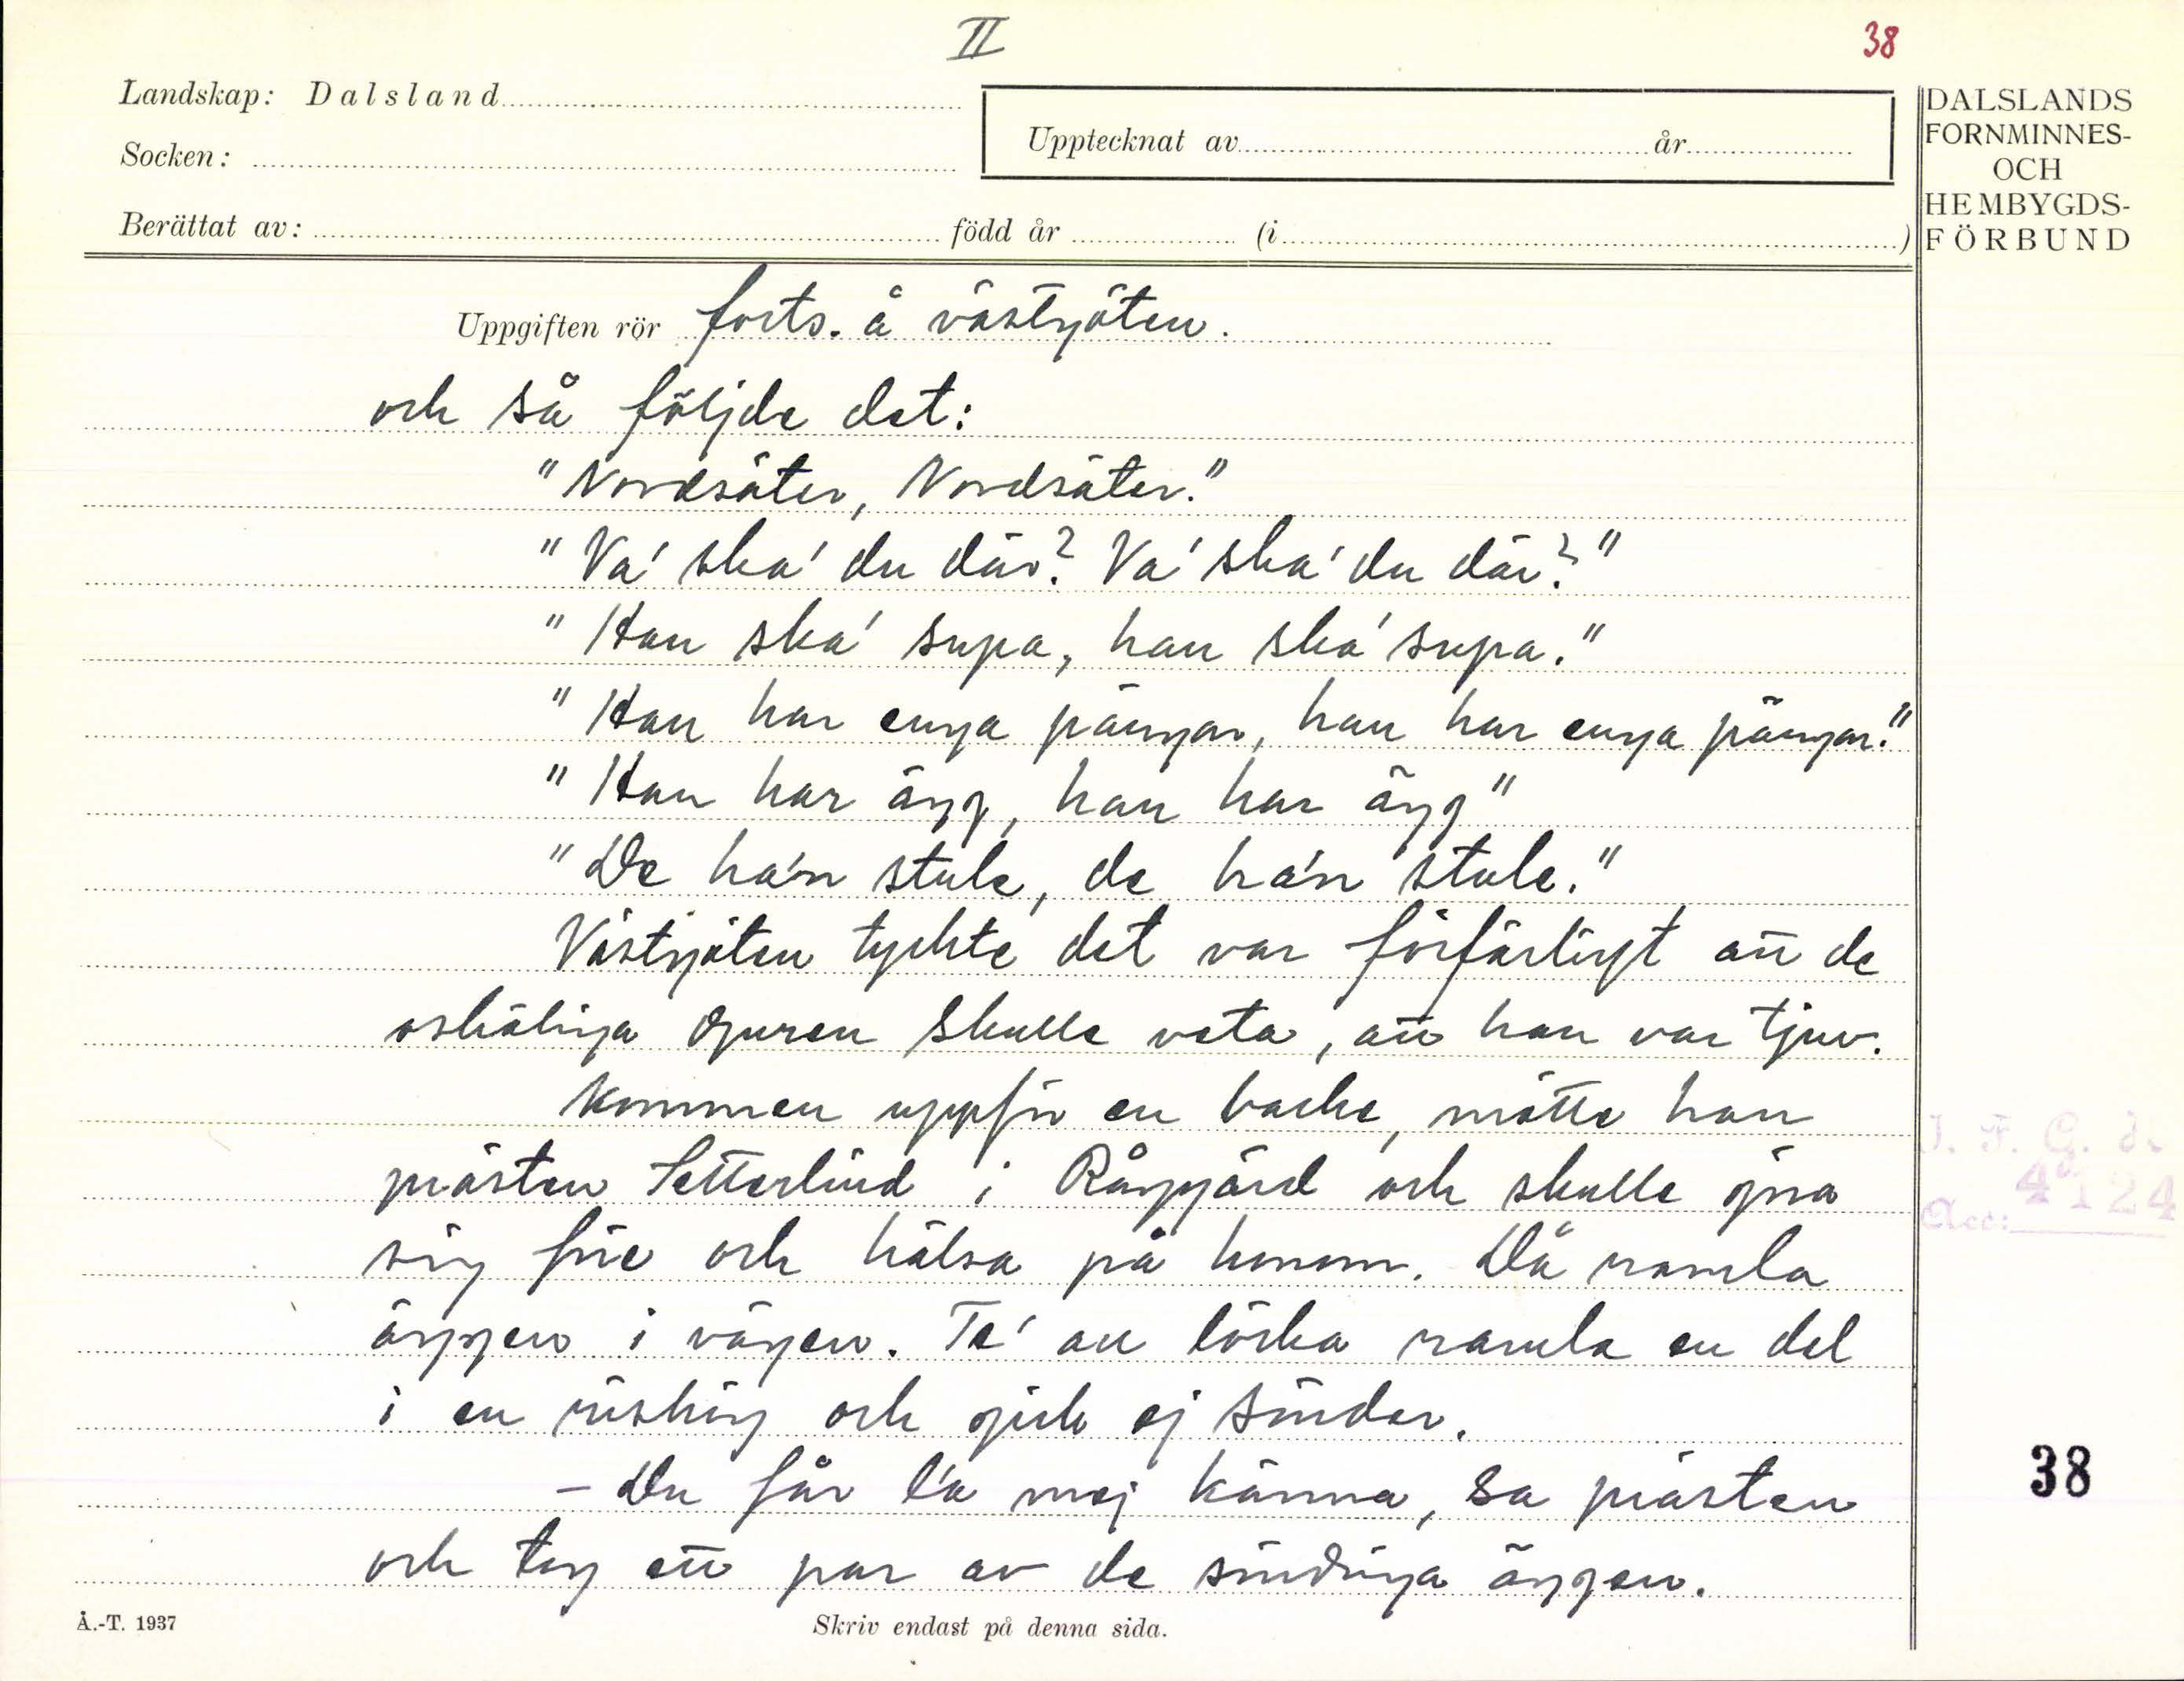 II
38
Landskap: Dalsland
Socken:
Upptecknat av år
Berättat av: född år (i )
DALSLANDS
FORNMINNES-
OCH
HEMBYGDS-
FÖRBUND
Uppgiften rör forts. å västgöten.
och så följde det:
"Nordsäter, Nordsäter."
"Va' ska' du där? Va' ska' du där?"
"Han ska' supa, han ska' supa."
"Han har enga pängar, han har enga pängar."
"Han har ägg, han har ägg"
"De ha'n stule, de ha'n stule."
Västgöten tyckte det var förfärligt att de
oskäliga djuren skulle veta, att han var tjuv.
Kommen uppför en backe, mötte han
prästen Setterlind i Rånggärd och skulle göra
sig före och hälsa på honom. Då ramla
äggen i vägen. Te' all löcka ramla en del
i en rishög och gick ej sönder.
- Du får la mej känna, sa prästen
och tog ett par av de söndriga äggen.
J. F. G. d.
Acc: 4124
38
Å.-T. 1937
Skriv endast på denna sida.